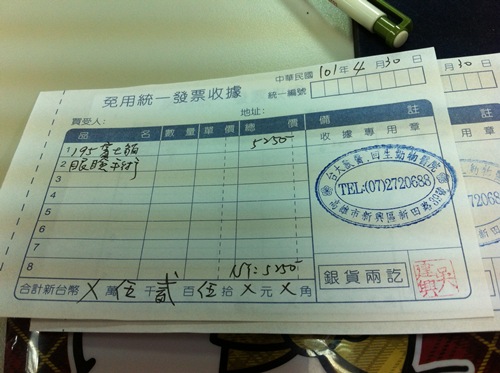 免用統一發票收據
中華民國 101 年 4 月 30 日
統一編號
買受人：
地址：
品名 數量 單價 總價 備註
1 195 5250
2 眼睛手術
3
4
5
6
7
8 NT: 5250
收據專用章
台大獸醫.田生動物醫院
TEL:(07)2720688
高雄市新興區新田路
銀貨兩訖
合計新台幣 X 萬 伍 千 貳 百 伍 拾 X 元 X 角
月 30 日